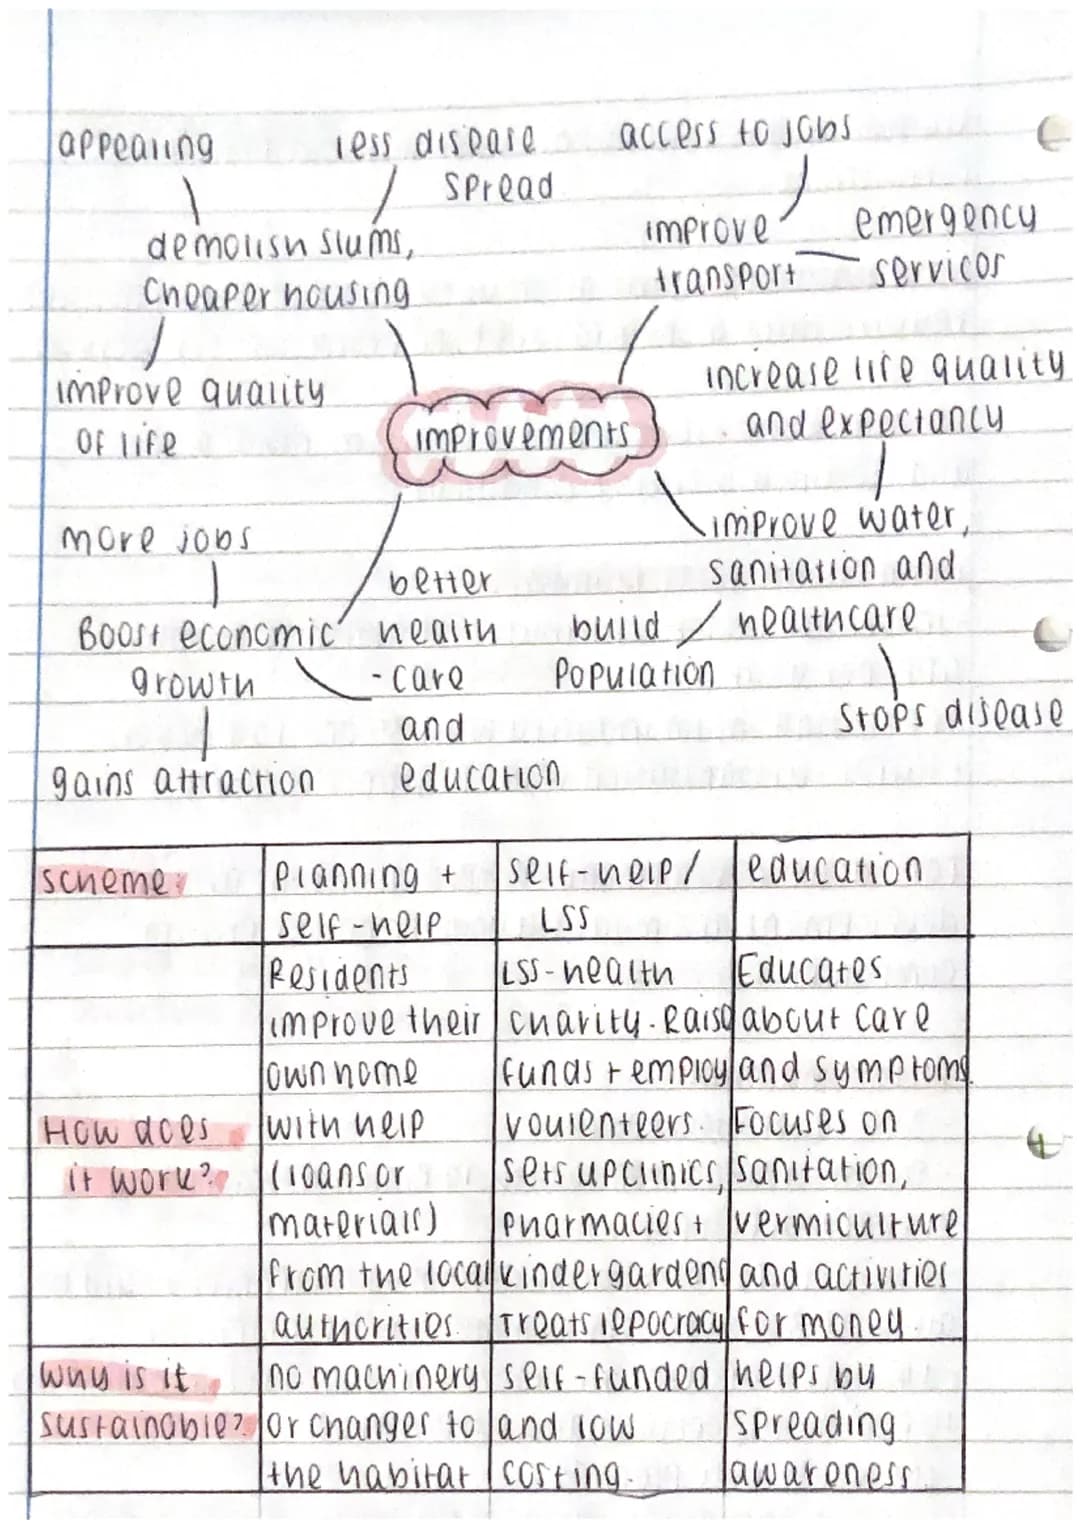 appealing
less disease
spread
access to jobs
demolish slums,
Cheaper housing
improve
transport
emergency
services
improve quality
of life
increase life quality
and expectancy
improvements
more jobs
Boost economic
growth
better
health
-care
and
education
gains attraction
improve water,
sanitation and
healthcare
build
Population
Stops disease
scheme
Planning +
self-help
self-help/
LSS
education
How does
it work?
Residents
improve their
own home
with help
(loans or
materials)
from the local
authorities.
LSS-health
charity. Raise
funds + employ
voulenteers.
Sets up clinics,
Pharmacies +
kindergardens
Treats lepocracy
Educates
about care
and symptoms.
Focuses on
sanitation,
vermiculture
and activities
for money.
Why is it
sustainable?
no machinery
or changes to
the habitat
self-funded
and low
costing.
helps by
spreading
awareness